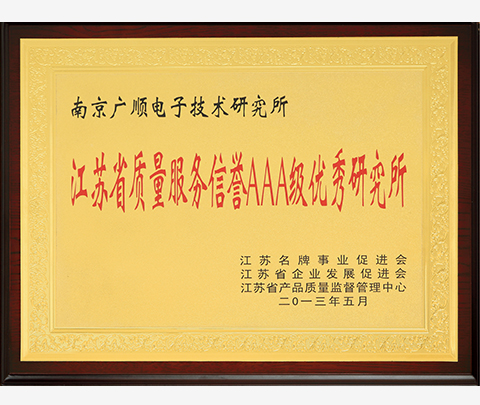 南京广顺电子技术研究所
江苏省质量服务信誉AAA级优秀研究所
江苏名牌事业促进会
江苏省企业发展促进会
江苏省产品质量监督管理中心
二〇一三年五月